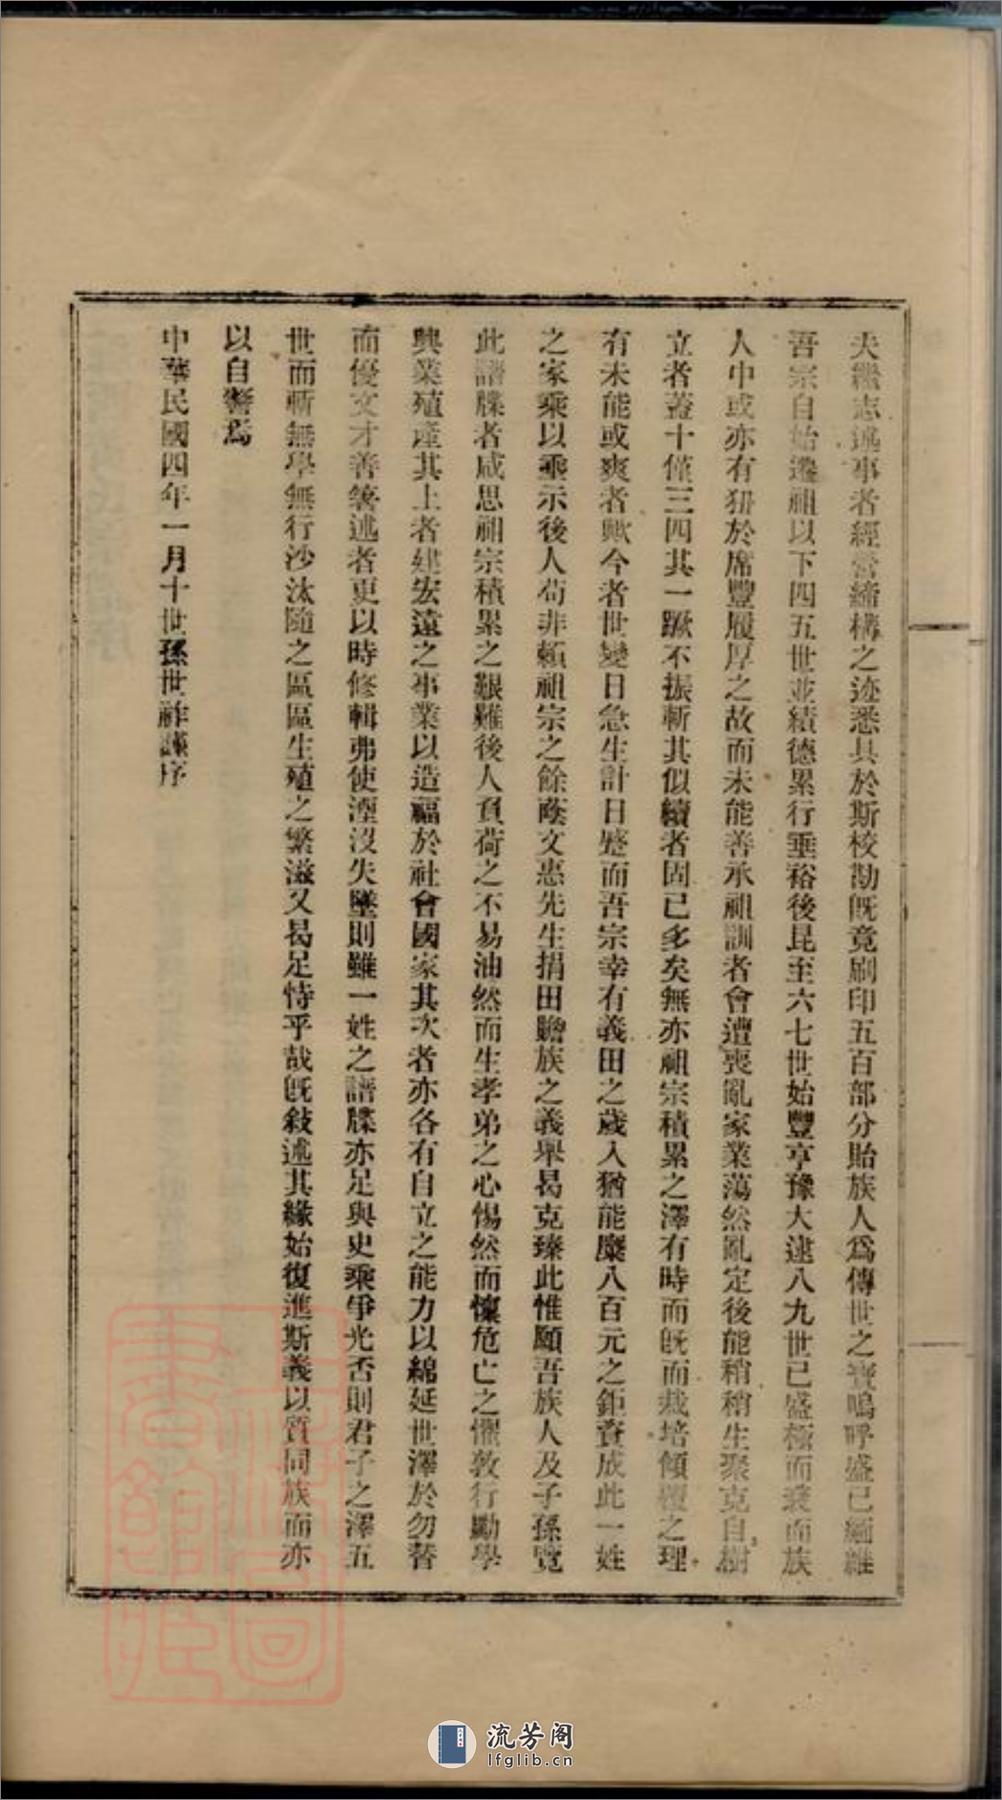 夫繼志述事者經營締構之迹悉具於斯校勘旣竟刷印五百部分貽族人爲傳世之寶嗚呼盛已緬維
吾宗自始遷祖以下四五世並績德累行垂裕後昆至六七世始豐亨豫大逮八九世已盛極而衰而族
人中或亦有狃於席豐履厚之故而未能善承祖訓者會遭喪亂家業蕩然亂定後能稍稍生聚克自樹
立者蓋十僅三四其一蹶不振斬其似續者固已多矣無亦祖宗積累之澤有時而旣而栽培傾覆之理
有未能或爽者歟今者世變日急生計日蹙而吾宗幸有義田之歲入猶能糜八百元之鉅資成此一姓
之家乘以垂示後人苟非賴祖宗之餘蔭文惠先生捐田贍族之義舉曷克臻此惟願吾族人及子孫覽
此譜牒者咸思祖宗積累之艱難後人負荷之不易油然而生孝弟之心惕然而懷危亡之懼敦行勵學
興業殖產其上者建宏遠之事業以造福於社會國家其次者亦各有自立之能力以綿延世澤於勿替
而優文才善箸述者更以時修輯弗使湮沒失墜則雖一姓之譜牒亦足與史乘爭光否則君子之澤五
世而斬無學無行沙汰隨之區區生殖之繁滋又曷足恃乎哉旣敍述其緣始復進斯義以質同族而亦
以自警焉
中華民國四年一月十世孫世祚謹序
上海圖書館藏
流芳阁
lfglib.cn